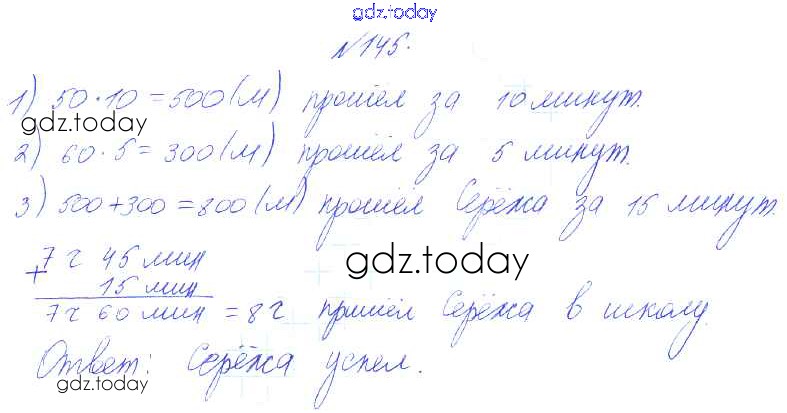 gdz.today
№145.
1) 50·10=500(м) прошёл за 10 минут.
gdz.today
2) 60·5=300(м) прошёл за 5 минут.
3) 500+300=800(м) прошёл Серёжа за 15 минут.
7 ч 45 мин
+ 15 мин
gdz.today
7 ч 60 мин = 8 ч пришёл Серёжа в школу.
Ответ: Серёжа успел.
gdz.today